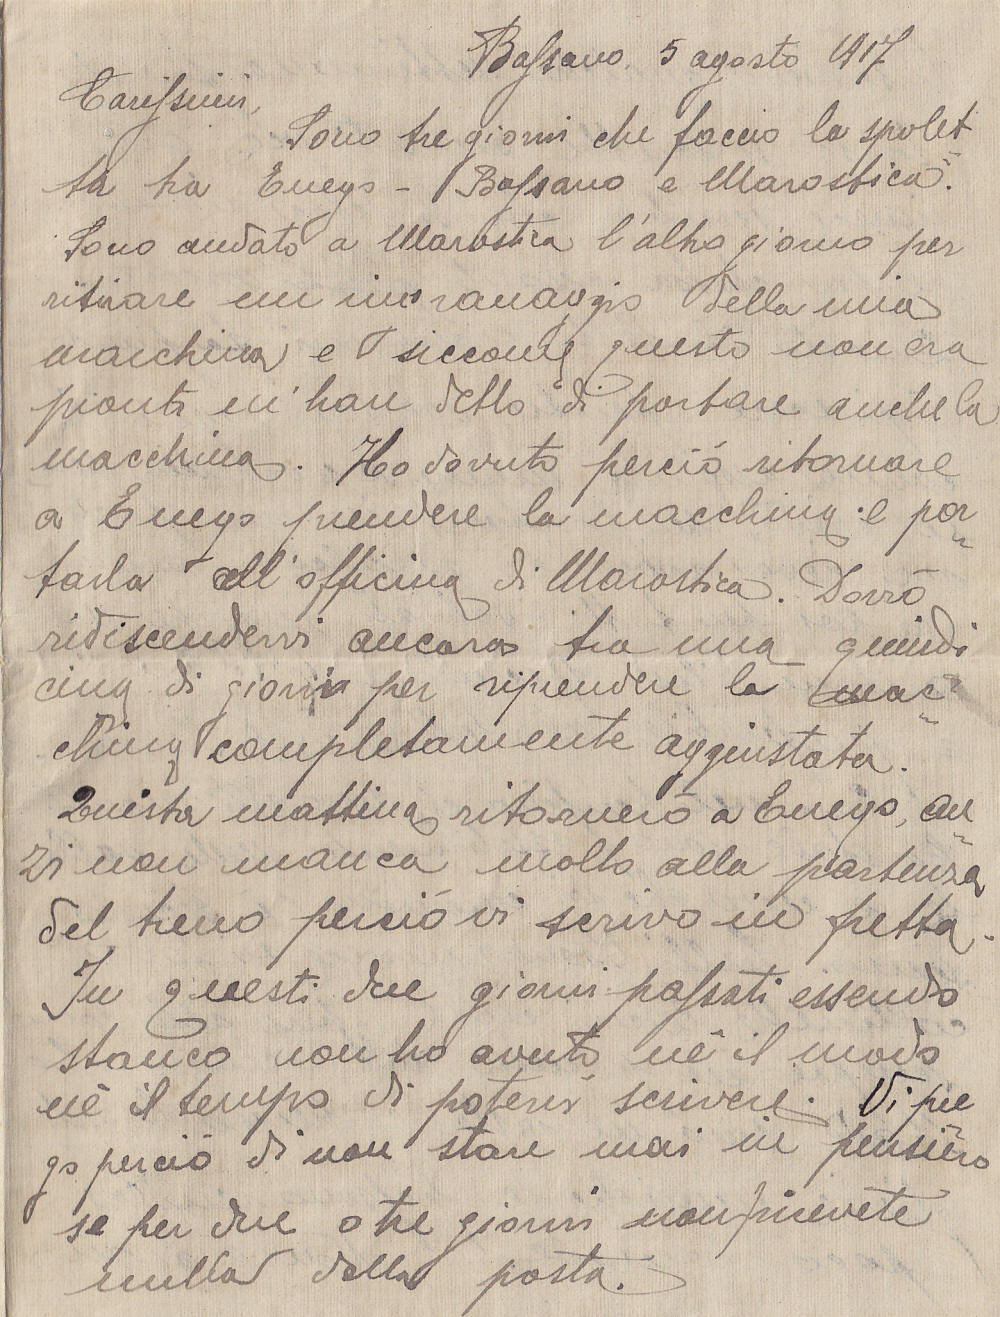 Bassano, 5 agosto 1917
Carissimi,
Sono tre giorni che faccio la spolet
ta tra Enego - Bassano e Marostica.
Sono andato a Marostica l'altro giorno per
ritirare un ingranaggio della mia
macchina e siccome questo non era
pronto m'han detto di portare anche la
macchina. Ho dovuto perciò ritornare
a Enego prendere la macchina e por
tarla all'officina di Marostica. Dovrò
ridiscendervi ancora tra una quindi
cina di giorni per riprendere la mac
china completamente aggiustata.
Questa mattina ritornerò a Enego, an
zi non manca molto alla partenza
del treno perciò vi scrivo in fretta.
In questi due giorni passati essendo
stanco non ho avuto nè il modo
nè il tempo di potervi scrivere. Vi pre
go perciò di non stare mai in pensiero
se per due o tre giorni non ricevete
nulla dalla posta.